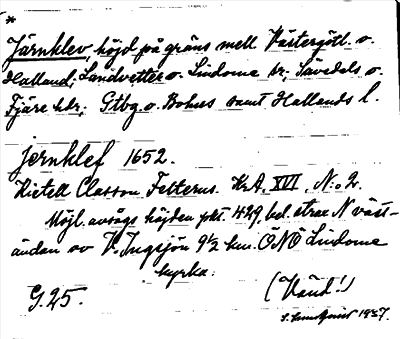 *
Järnklev, höjd på gräns mell. Västergötl. o.
Halland; Landvetter o. Lindome sr; Sävedels o.
Fjäre hdr; Gtbg o. Bohus samt Hallands l.
Jernklef 1652.
Kietell Classon Felterus. KrA, XVI, N:o 2.
Möjl. avsågs höjden pkt. 429, bel. strax N väst-
ändan av V. Ingsjön 9½ km. ÖNÖ Lindome
kyrka.
G. 25.
(Vänd!)
1937.